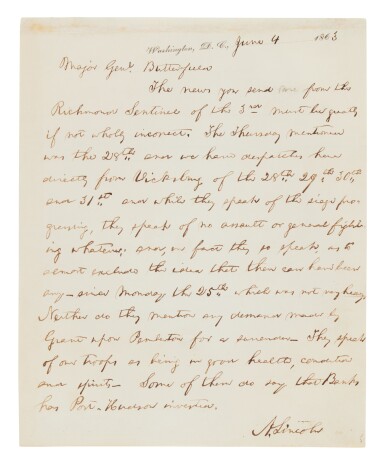 Washington, D.C., June 4 1863
Major Genl. Butterfield
The news you send me from the
Richmond Sentinel of the 3rd must be greatly
if not wholly incorrect. The Thursday mentioned
was the 28th and we have despatches here
directly from Vicksburg of the 28th 29th 30th
and 31st and while they speak of the siege pro-
gressing, they speak of no assault or general fight-
ing whatever; and, in fact they so speak as to
almost exclude the idea that there can have been
any since Monday the 25th which was not very heavy
Neither do they mention any demand made by
Grant upon Pemberton for a surrender. They speak
of our troops as being in good health, condition
and spirits. Some of them do say that Banks
has Port-Hudson invested.
A. Lincoln